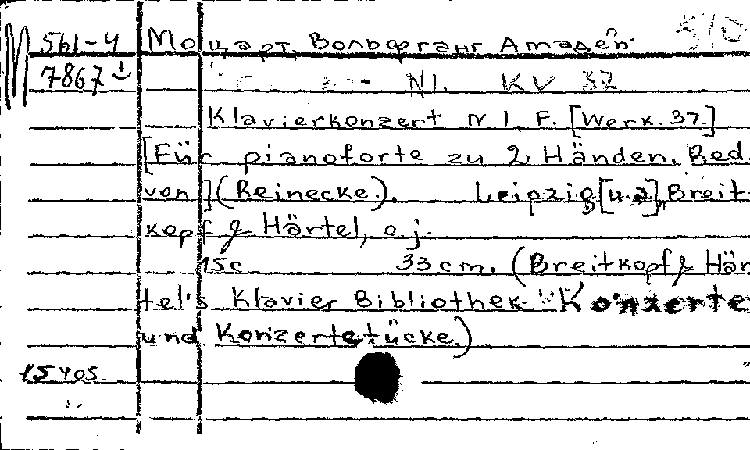 М 561-4 Моцарт, Вольфганг Амадей.
7867 N1. KV 37
Klavierkonzert N 1. F. [Werk. 37.]
[Für pianoforte zu 2 Händen. Bed.
von] (Reinecke.). Leipzig [u.a], Breit-
kopf & Härtel, o.j.
15c 33 cm. (Breitkopf & Här-
tel's Klavier Bibliothek. Konzerte
und Konzertstücke.)
15405